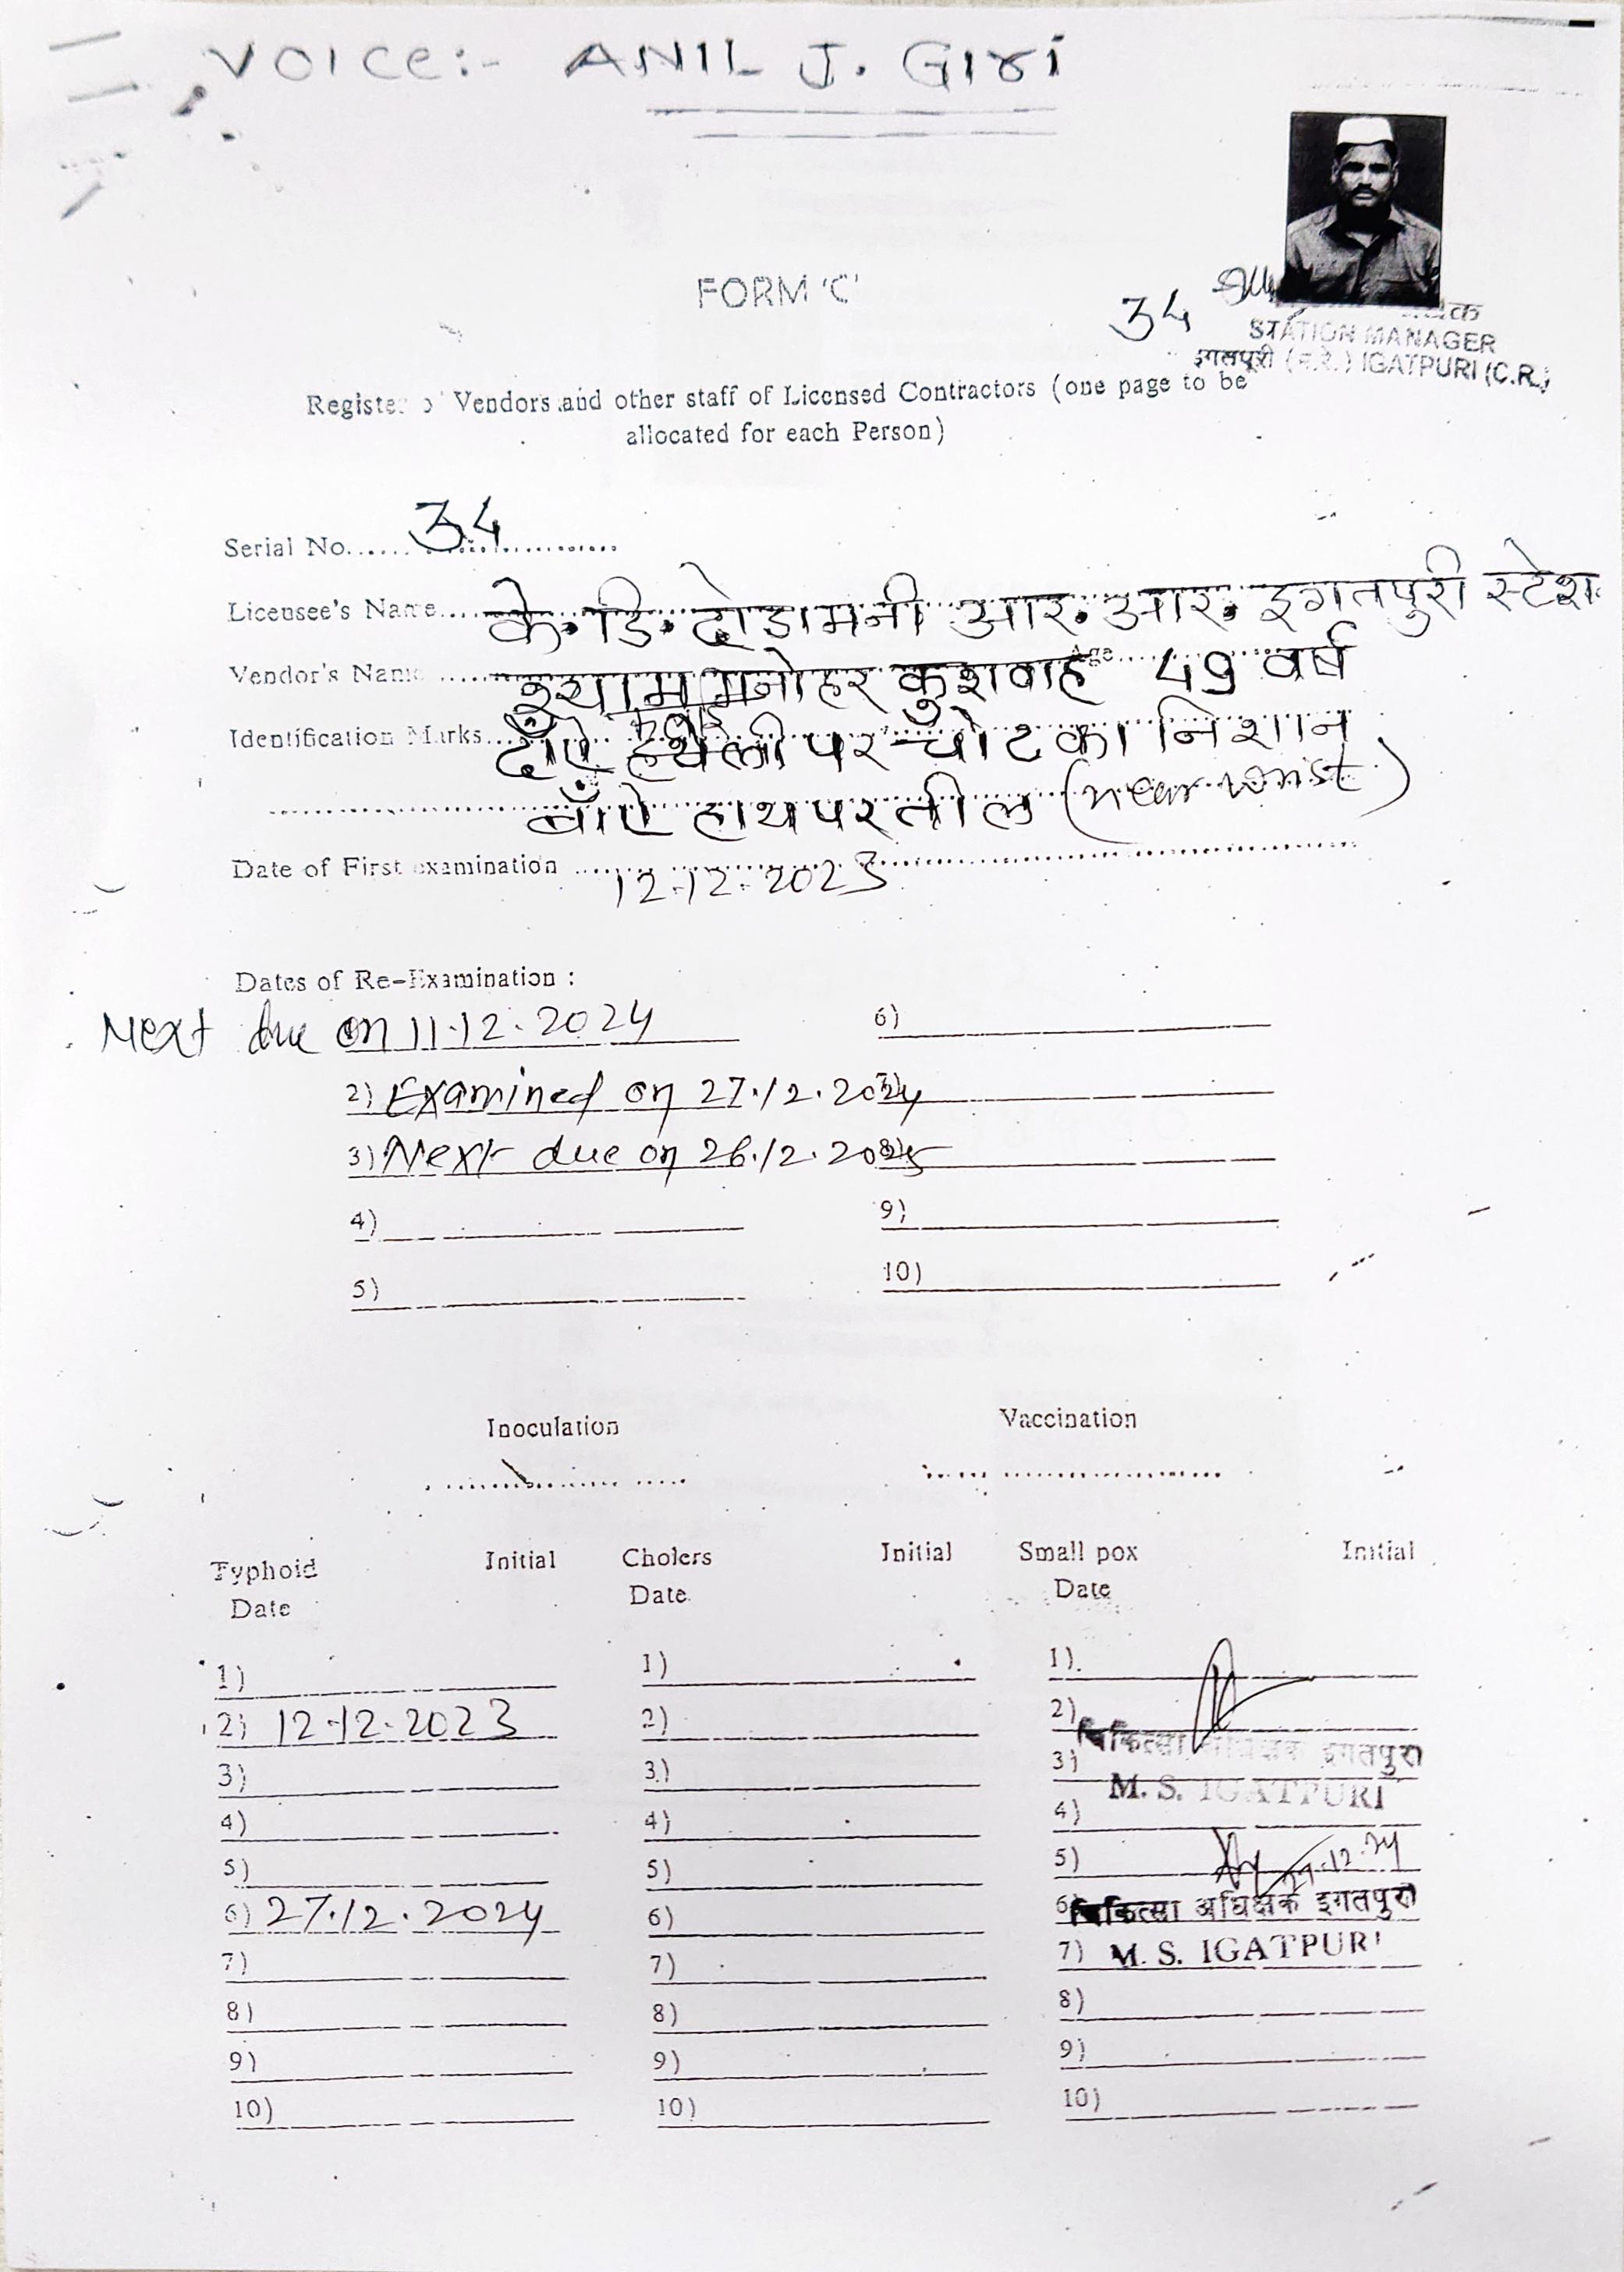 VOICE:- ANIL J. GIRI
FORM 'C'
34
STATION MANAGER
इगतपुरी (म.रे.) IGATPURI (C.R.)
Register of Vendors and other staff of Licensed Contractors (one page to be
allocated for each Person)
Serial No. 34
Licensee's Name के. डि. दोडामनी आर. आर. इगतपुरी स्टेश
Vendor's Name श्याम मनोहर कुशवाह Age 49 वर्ष
Identification Marks दाँऐ हथेली पर चोट का निशान
बाँऐ हाथ पर तील (near wrist)
Date of First examination 12-12-2023
Dates of Re-Examination :
Next due on 11.12.2024 6)
2) Examined on 27.12.2024 7)
3) Next due on 26.12.2025 8)
4) 9)
5) 10)
Inoculation Vaccination
Typhoid Initial Cholers Initial Small pox Initial
Date Date Date
1) 1) 1)
2) 12-12-2023 2) 2)
चिकित्सा अधिक्षक इगतपुरी
3) 3) 3)
M. S. IGATPURI
4) 4) 4)
5) 5) 5) 27.12.24
6) 27.12.2024 6) 6) चिकित्सा अधिक्षक इगतपुरी
7) 7) 7) M. S. IGATPURI
8) 8) 8)
9) 9) 9)
10) 10) 10)